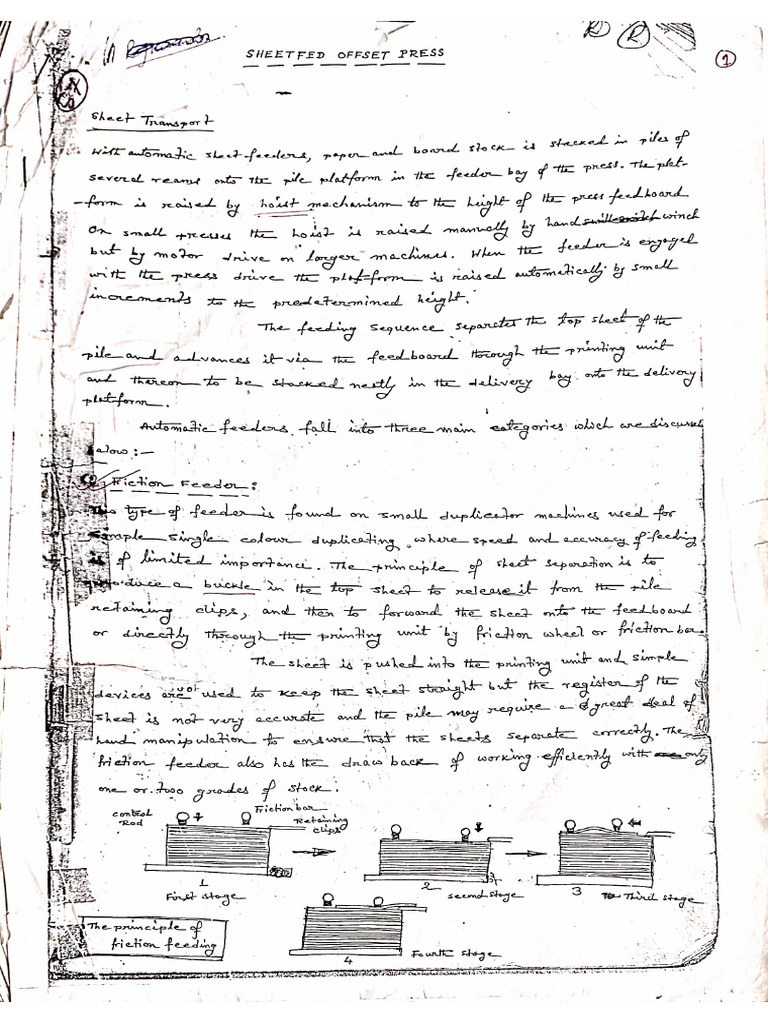 SHEETFED OFFSET PRESS
1
Sheet Transport
With automatic sheet-feeders, paper and board stock is stacked in piles of
several reams onto the pile platform in the feeder bay of the press. The plat-
-form is raised by hoist mechanism to the height of the press feedboard
On small presses the hoist is raised manually by hand winch
but by motor drive on larger machines. When the feeder is engaged
with the press drive the platform is raised automatically by small
increments to the predetermined height.
The feeding sequence separates the top sheet of the
pile and advances it via the feedboard through the printing unit
and thereon to be stacked neatly in the delivery bay onto the delivery
platform.
Automatic feeders fall into three main categories which are discussed
below:-
Friction Feeder:
This type of feeder is found on small duplicator machines used for
simple single colour duplicating where speed and accuracy of feeding
is of limited importance. The principle of sheet separation is to
produce a buckle in the top sheet to release it from the pile
retaining clips, and then to forward the sheet onto the feedboard
or directly through the printing unit by friction wheel or friction bar.
The sheet is pushed into the printing unit and simple
devices are used to keep the sheet straight but the register of the
sheet is not very accurate and the pile may require a great deal of
hand manipulation to ensure that the sheets separate correctly. The
friction feeder also has the draw back of working efficiently with only
one or two grades of stock.
control Rod
Friction bar
Retaining clips
1
First stage
2
second stage
3
Third stage
The principle of
friction feeding
4
Fourth stage